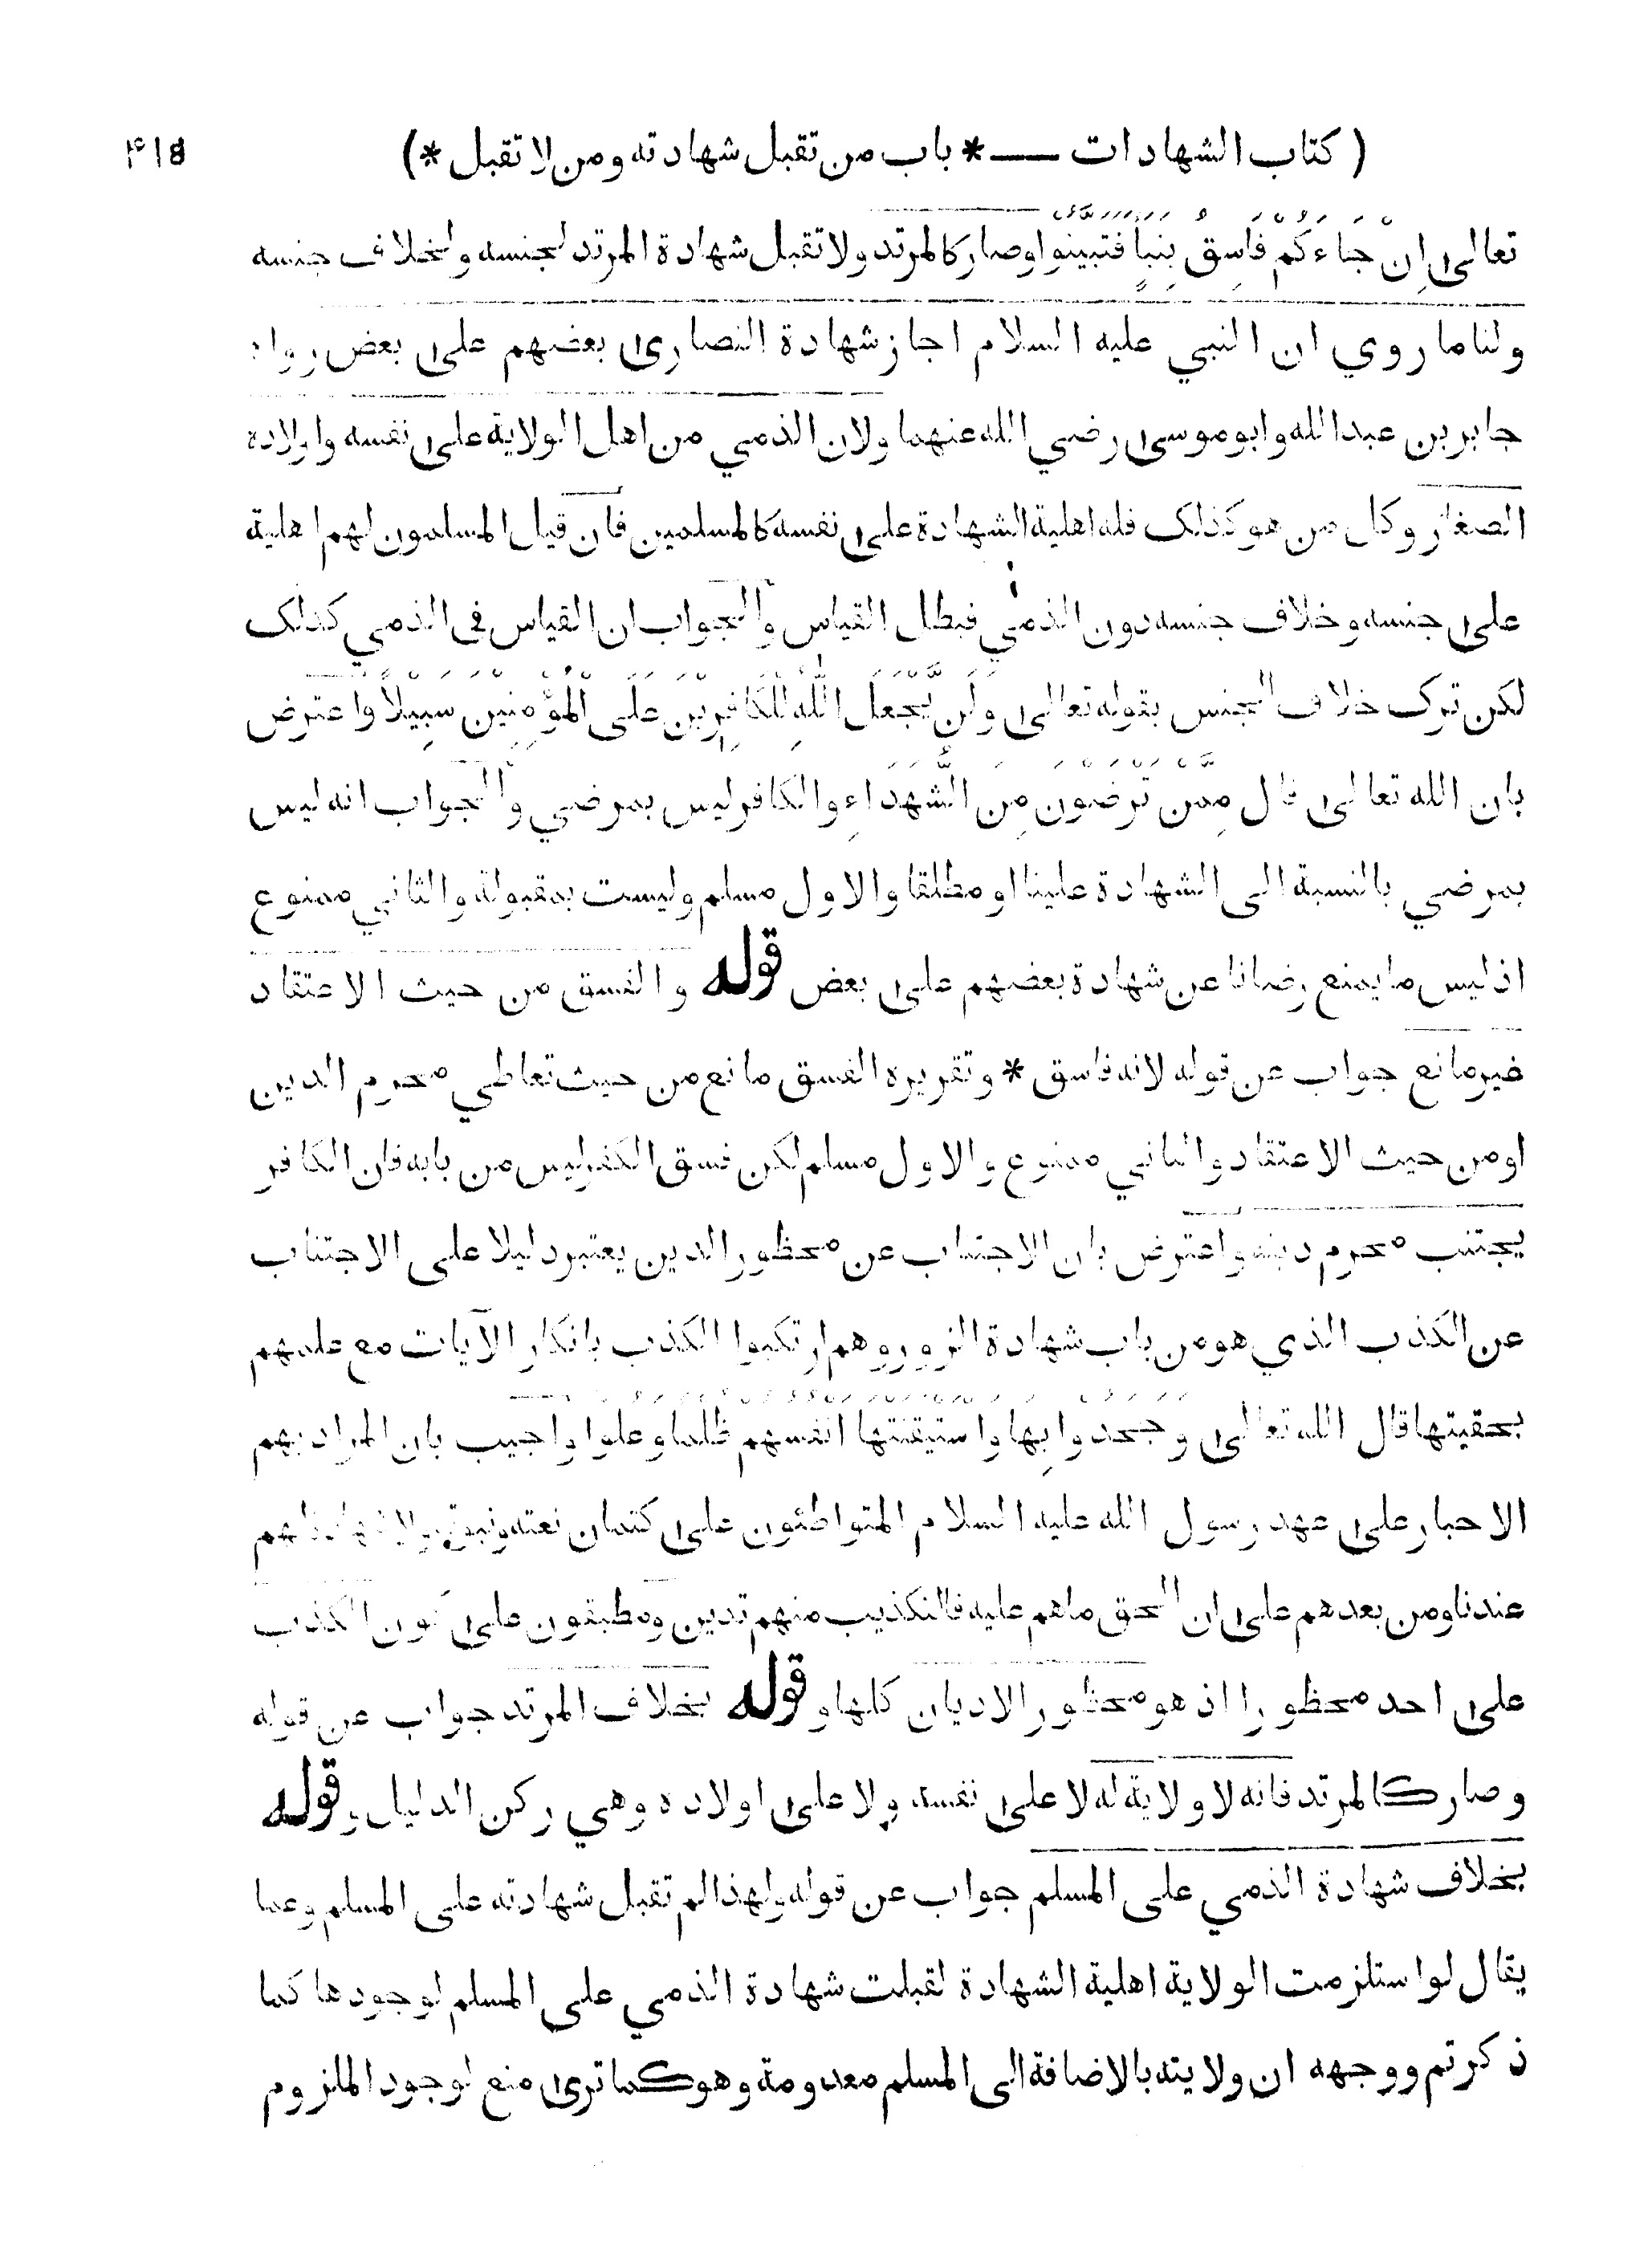 ( كتاب الشهادات — * باب من تقبل شهادته ومن لا تقبل * )
تعالى اِنْ جَاءَكُمْ فَاسِقٌ بِنَبَأٍ فَتَبَيَّنُوا وصار كالمرتد ولا تقبل شهادة المرتد لجنسه ولخلاف جنسه
ولنا ما روي ان النبي عليه السلام اجاز شهادة النصارى بعضهم على بعض رواه
جابر بن عبد الله وابو موسى رضي الله عنهما ولان الذمي من اهل الولاية على نفسه واولاده
الصغار وكل من هو كذلك فله اهلية الشهادة على نفسه كالمسلمين فان قيل المسلمون لهم اهلية
على جنسه وخلاف جنسه دون الذمي فبطل القياس والجواب ان القياس فى الذمي كذلك
لكن ترك خلاف الجنس بقوله تعالى وَلَنْ يَّجْعَلَ اللّٰهُ لِلْكَافِرِيْنَ عَلَى الْمُؤْمِنِيْنَ سَبِيْلًا واعترض
بان الله تعالى قال مِمَّنْ تَرْضَوْنَ مِنَ الشُّهَدَاءِ والكافر ليس بمرضي والجواب انه ليس
بمرضي بالنسبة الى الشهادة علينا او مطلقا والاول مسلم وليست بمقبولة والثاني ممنوع
اذ ليس ما يمنع رضانا عن شهادة بعضهم على بعض قوله والفسق من حيث الاعتقاد
غير مانع جواب عن قوله لانه فاسق * وتقريره الفسق مانع من حيث تعاطي محرم الدين
او من حيث الاعتقاد والثاني ممنوع والاول مسلم لكن فسق الكفر ليس من بابه فان الكافر
يجتنب محرم دينه واعترض بان الاجتناب عن محظور الدين يعتبر دليلا على الاجتناب
عن الكذب الذي هو من باب شهادة الزور وهم ارتكبوا الكذب بانكار الآيات مع علمهم
بحقيتها قال الله تعالى وَجَحَدُوا بِهَا وَاسْتَيْقَنَتْهَا اَنْفُسُهُمْ ظُلْمًا وَعُلُوًّا واجيب بان المراد بهم
الاحبار على عهد رسول الله عليه السلام المتواطئون على كتمان نعته ونبوته ولا شهادة لهم
عندنا ومن بعدهم على ان الحق ماهم عليه فالتكذيب منهم تدين ومطبقون على كون الكذب
على احد محظورا اذ هو محظور الاديان كلها و قوله بخلاف المرتد جواب عن قوله
وصار كالمرتد فانه لا ولاية له لا على نفسه ولا على اولاده وهي ركن الدليل و قوله
بخلاف شهادة الذمي على المسلم جواب عن قوله ولهذا لم تقبل شهادته على المسلم وعما
يقال لو استلزمت الولاية اهلية الشهادة لقبلت شهادة الذمي على المسلم لوجودها كما
ذكرتم ووجهه ان ولايته بالاضافة الى المسلم معدومة وهو كما ترى منع لوجود الملزوم